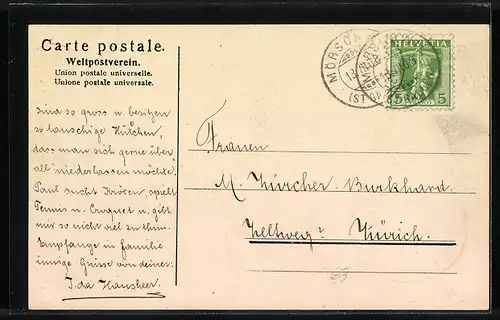 Carte postale.
Weltpostverein.
Union postale universelle.
Unione postale universale.
sind so gross u. besitzen
so lauschige Hüttchen,
dass man sich gerne über
all "niederlassen möchte"
Paul sucht Kröten, spielt
Tennis u. Croquet u. gibt
mir so nicht viel zu thun.
Empfange in familie
innige Grüsse von deiner
Ida Hausheer
MÖRSCH
HELVETIA
5 5
Frauen
M. Zürcher Burkhard.
Zeltweg Zürich.